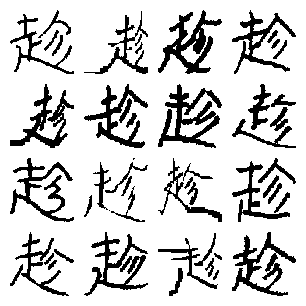 趁趁趁趁
趁趁趁趁
趁趁趁趁
趁趁趁趁